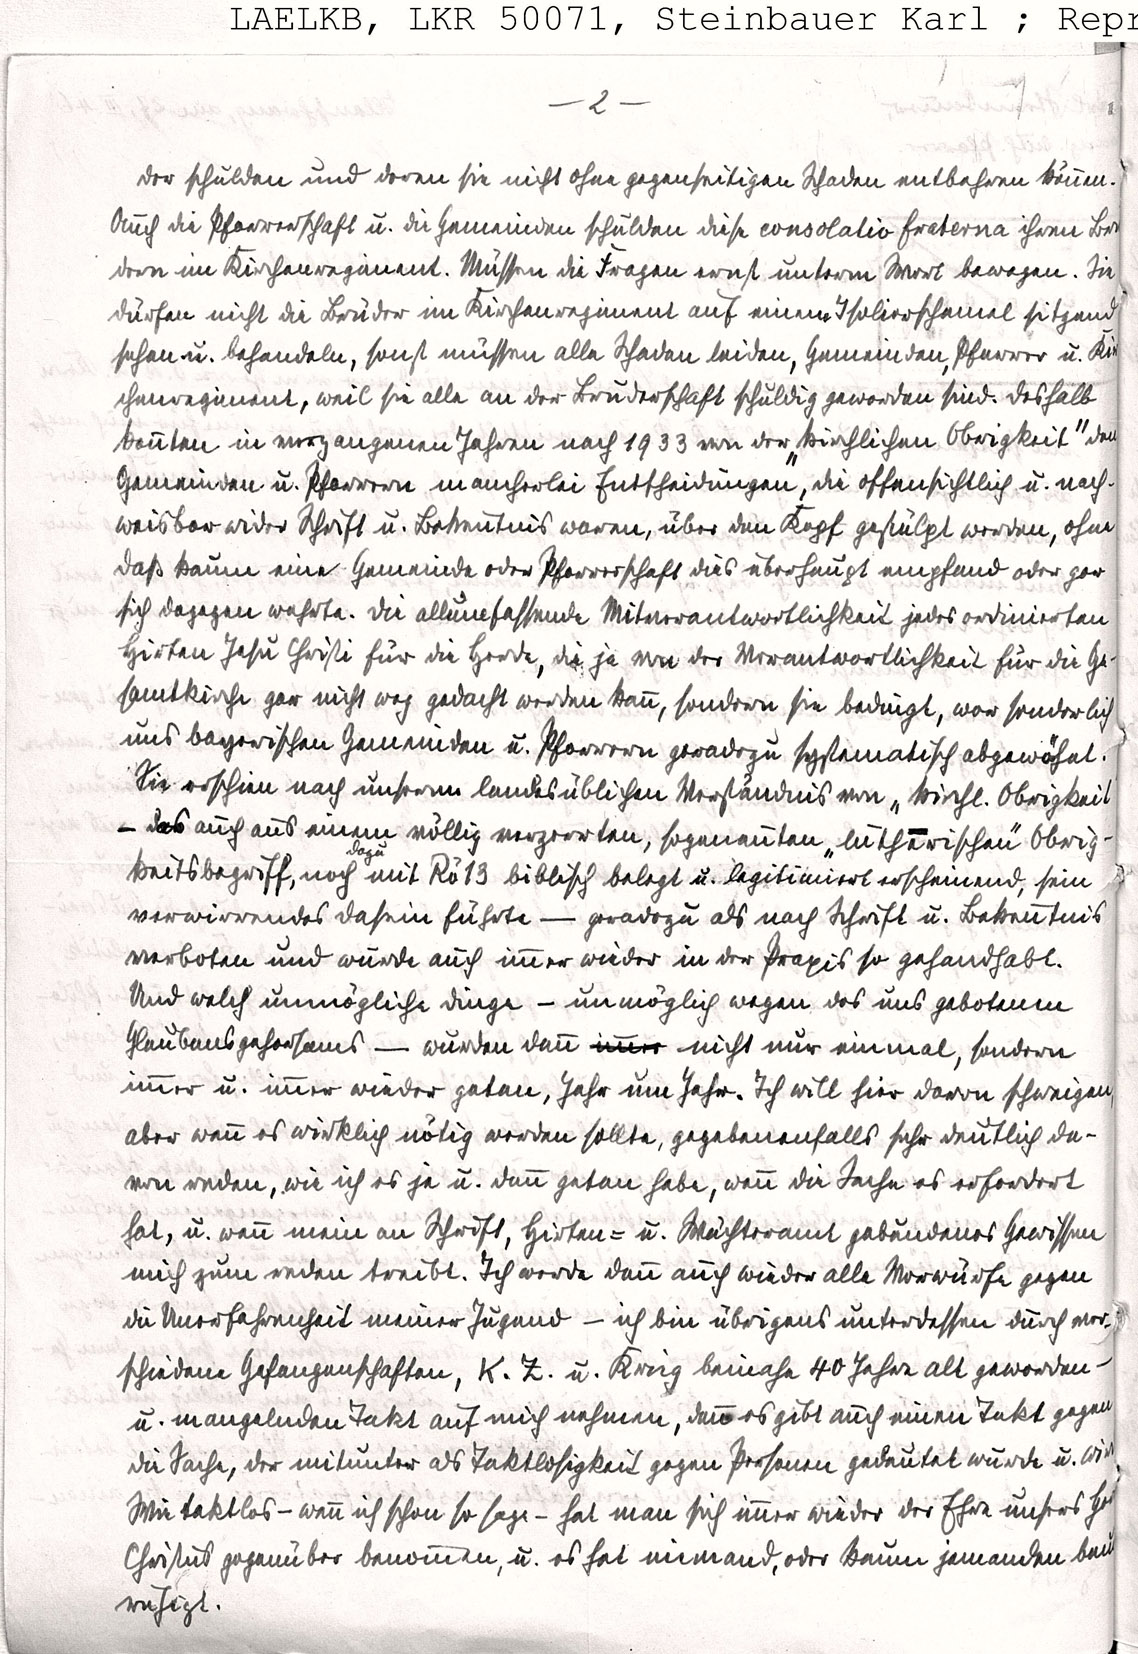 LAELKB, LKR 50071, Steinbauer Karl ; Repr
— 2 —
der schulden und deren sie nicht ohne gegenseitigen Schaden entbehren können.
Auch die Pfarrerschaft u. die Gemeinden schulden diese consolatio fraterna ihren Brü
dern im Kirchenregiment. Müssen die Fragen ernst unterm Wort bewegen. Sie
dürfen nicht die Brüder im Kirchenregiment auf einem Isolierschemel sitzend
sehen u. behandeln, sonst müssen alle Schaden leiden, Gemeinden, Pfarrer u. Kir
chenregiment, weil sie alle an der Bruderschaft schuldig geworden sind. Deshalb
konnten in vergangenen Jahren nach 1933 von der „kirchlichen Obrigkeit" den
Gemeinden u. Pfarrern mancherlei Entscheidungen, die offensichtlich u. nach-
weisbar wider Schrift u. Bekenntnis waren, über den Kopf gestülpt werden, ohne
daß kaum eine Gemeinde oder Pfarrerschaft dies überhaupt empfand oder gar
sich dagegen wehrte. Die allumfassende Mitverantwortlichkeit jedes ordinierten
Hirten Jesu Christi für die Herde, die ja von der Verantwortlichkeit für die Ge-
samtkirche gar nicht weg gedacht werden kann, sondern sie bedingt, war sonderlich
uns bayerischen Gemeinden u. Pfarrern geradezu systematisch abgewöhnt.
Sie erschien nach unserem landesüblichen Verständnis von „kirchl. Obrigkeit
– das auch aus einem völlig verzerrten, sogenannten „lutherischen" Obrig-
keitsbegriff, noch dazu mit Rö 13 biblisch belegt u. legitimiert erscheinend, sein
verwirrendes Dasein führte — geradezu als nach Schrift u. Bekenntnis
verboten und wurde auch immer wieder in der Praxis so gehandhabt.
Und welch unmögliche Dinge – unmöglich wegen des uns gebotenen
Glaubensgehorsams — wurden dann immer nicht nur einmal, sondern
immer u. immer wieder getan, Jahr um Jahr. Ich will hier davon schweigen,
aber wenn es wirklich nötig werden sollte, gegebenenfalls sehr deutlich da-
von reden, wie ich es je u. dann getan habe, wenn die Sache es erfordert
hat, u. wenn mein an Schrift, Hirten= u. Wächteramt gebundenes Gewissen
mich zum reden treibt. Ich werde dann auch wieder alle Vorwürfe gegen
die Unerfahrenheit meiner Jugend – ich bin übrigens unterdessen durch ver-
schiedene Gefangenschaften, K. Z. u. Krieg beinahe 40 Jahre alt geworden –
u. mangelnden Takt auf mich nehmen, denn es gibt auch einen Takt gegen
die Sache, der mitunter als Taktlosigkeit gegen Personen gedeutet wurde u. wird.
Wie taktlos – wenn ich schon so sage – hat man sich immer wieder der Ehre unsers
Christus gegenüber benommen, u. es hat niemand, oder kaum jemanden beun
ruhigt.